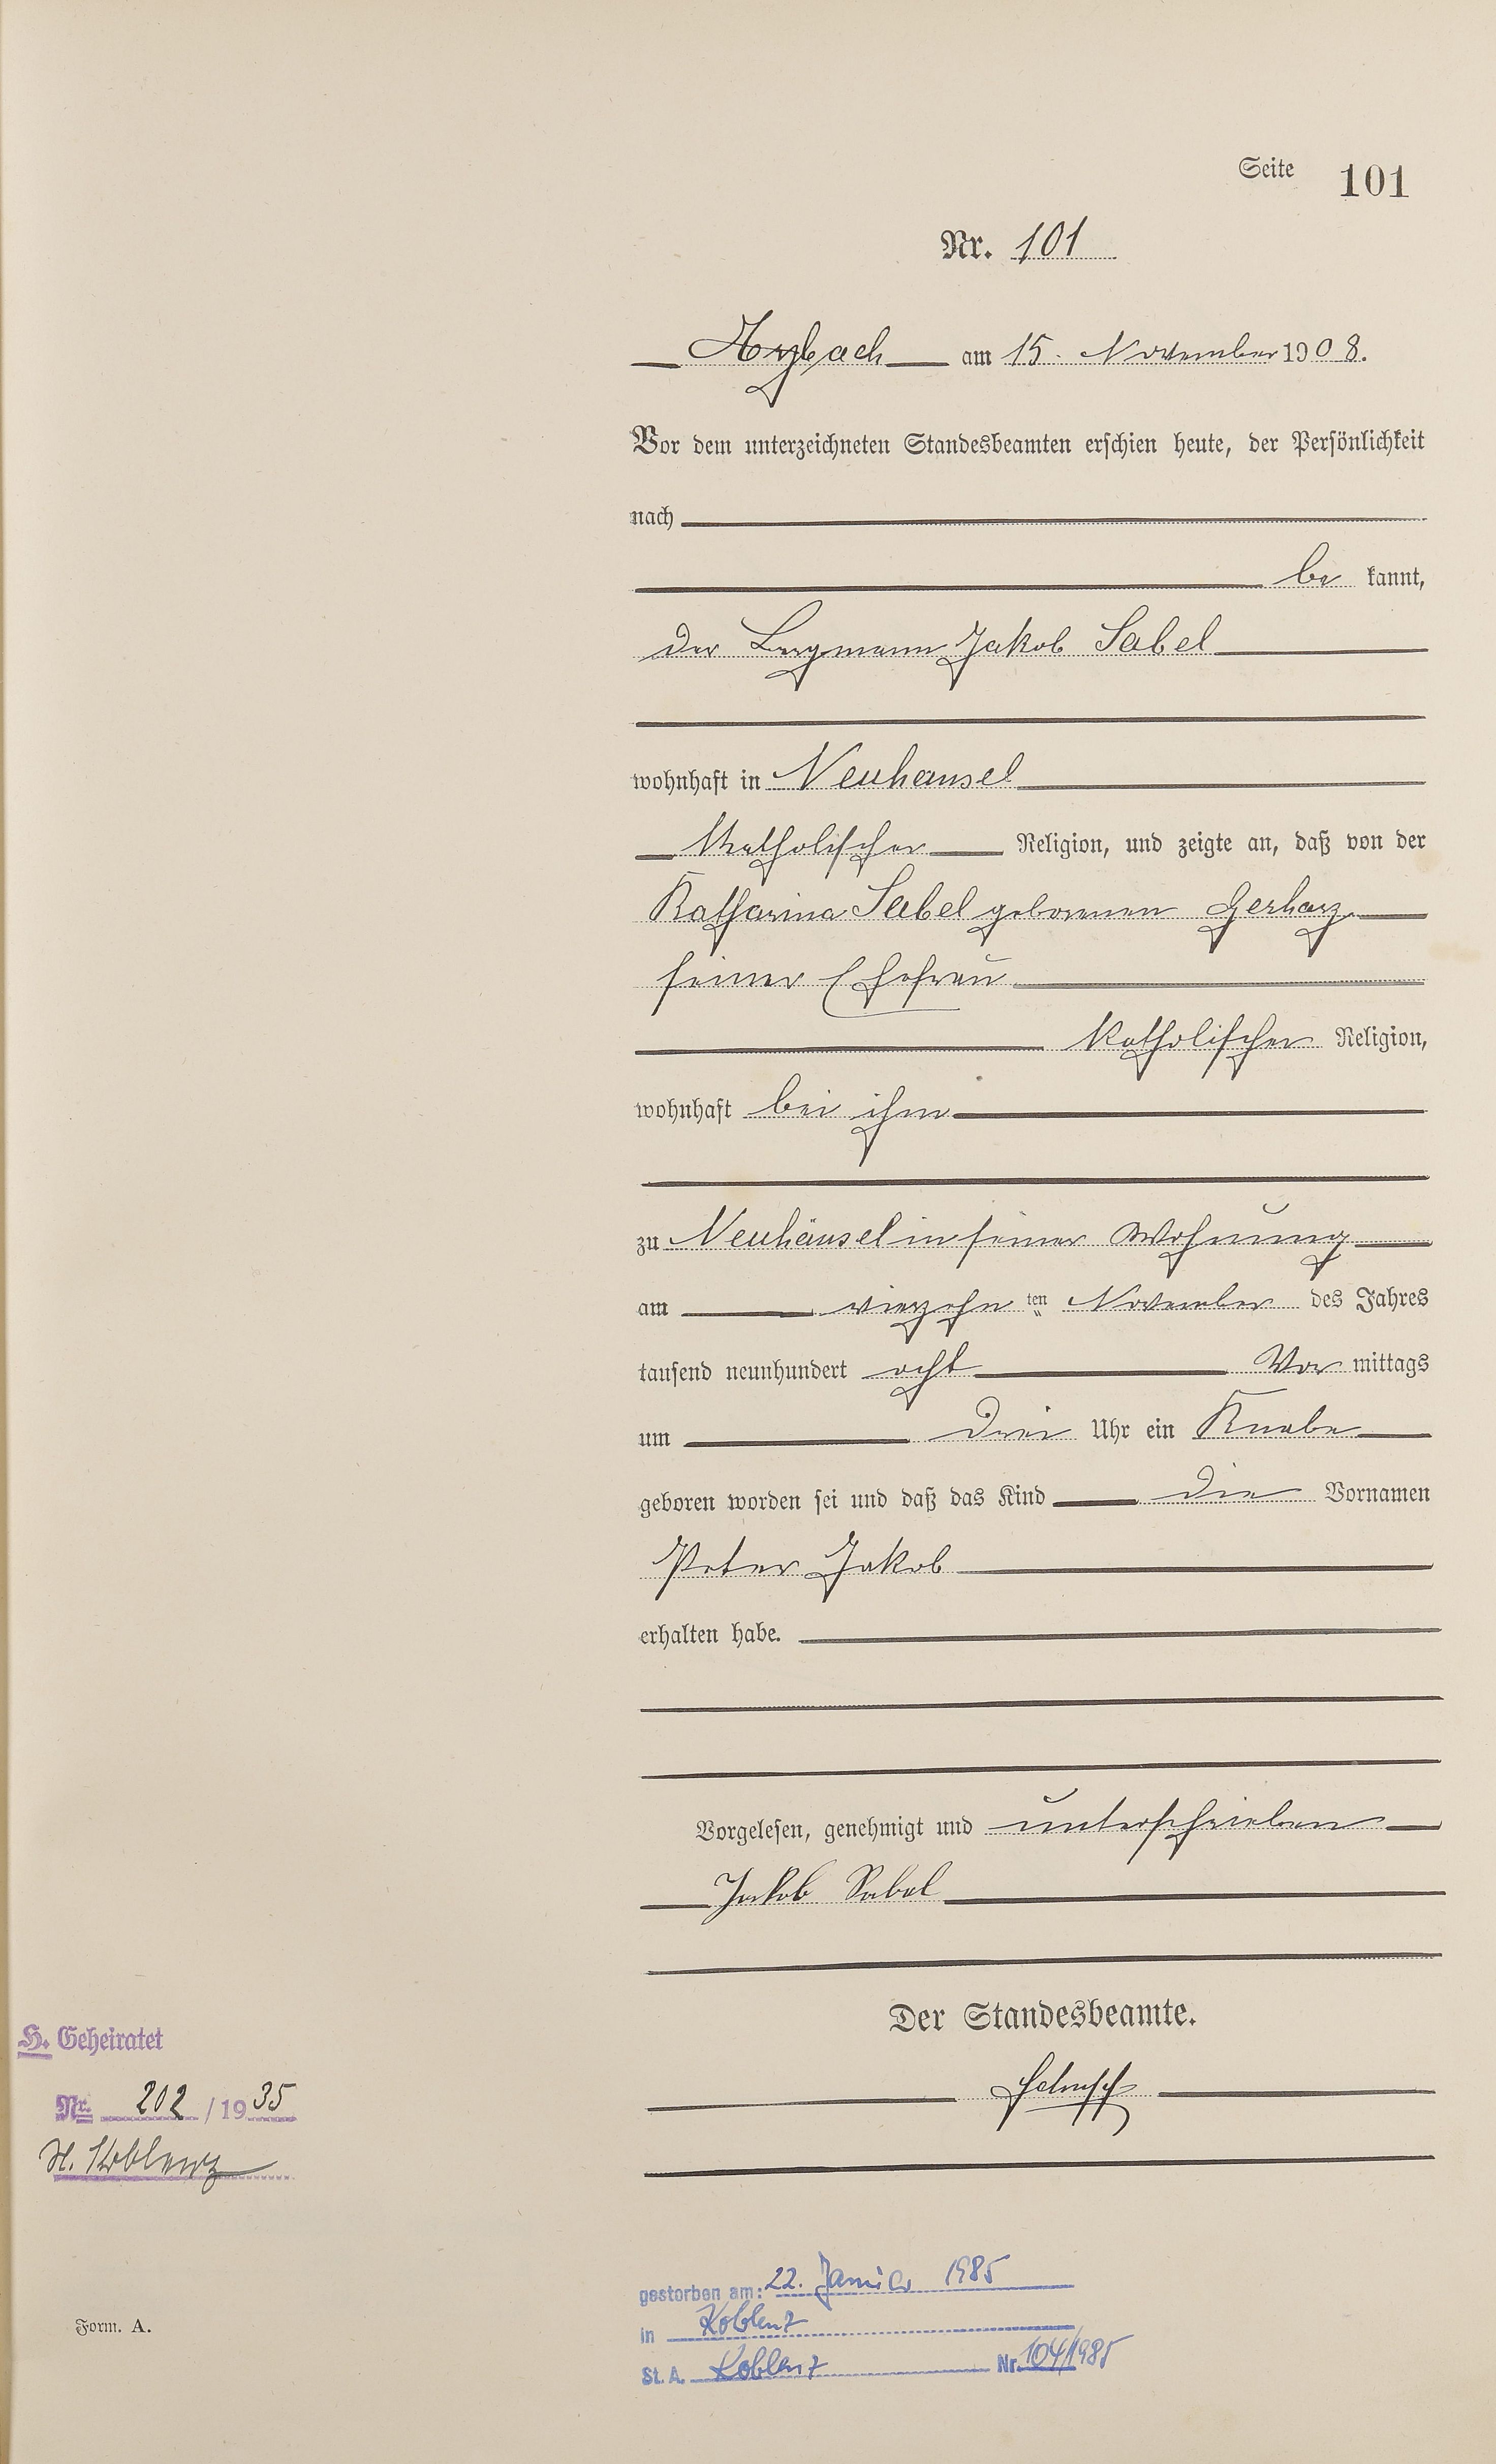 Seite 101
Nr. 101
Arzbach am 15. November 1908.
Vor dem unterzeichneten Standesbeamten erschien heute, der Persönlichkeit
nach
be kannt,
der Bergmann Jakob Sabel
wohnhaft in Neuhäusel
katholischer Religion, und zeigte an, daß von der
Katharina Sabel geborenen Gerharz
seiner Ehefrau
katholischer Religion,
wohnhaft bei ihm
zu Neuhäusel in seiner Wohnung
am vierzehn ten November des Jahres
tausend neunhundert acht Vor mittags
um drei Uhr ein Knabe
geboren worden sei und daß das Kind die Vornamen
Peter Jakob
erhalten habe.
Vorgelesen, genehmigt und unterschrieben
Jakob Sabel
Der Standesbeamte.
H. Geheiratet
Nr. 202 / 1935
Koblenz
gestorben am: 22. Januar 1985
in Koblenz
St. A. Koblenz Nr. 104/1985
Form. A.